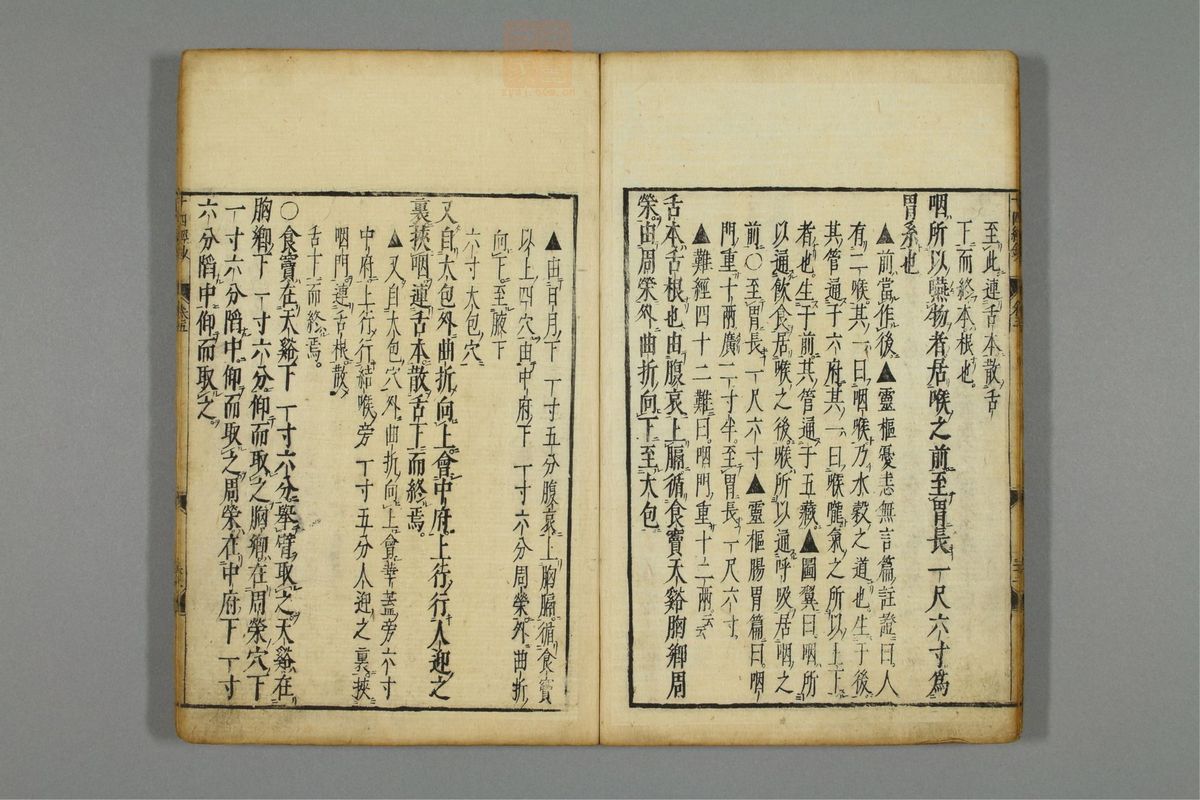 至此連舌本散舌
下而終本根也
咽所以嚥物者居喉之前至胃長一尺六寸爲
胃系也
▲前當作後▲靈樞憂恚無言篇註證曰人
有二喉其一曰咽喉乃水穀之道也生于後
其管通于六府其一曰喉嚨氣之所以上下
者也生于前其管通于五藏▲圖翼曰咽所
以通飲食居喉之後喉所以通呼吸居咽之
前○至胃長一尺六寸▲靈樞腸胃篇曰咽
門重十兩廣一寸半至胃長一尺六寸
▲難經四十二難曰咽門重十二兩云云
舌本舌根也由腹哀上膈循食竇天谿胸鄉周
榮由周榮外曲折向下至大包
▲由日月下一寸五分腹哀上胸膈循食竇
以上四穴由中府下一寸六分周榮外曲折
向下至腋下
六寸大包穴
又自大包外曲折向上會中府上行行人迎之
裏挾咽連舌本散舌下而終焉
▲又自大包穴外曲折向上會華蓋旁六寸
中府上行行結喉旁一寸五分人迎之裏挾
咽門連舌根散
舌下而終焉
○食竇在天谿下一寸六分舉臂取之天谿在
胸鄉下一寸六分仰而取之胸鄉在周榮穴下
一寸六分陷中仰而取之周榮在中府下一寸
六分陷中仰而取之
十四經
卷五